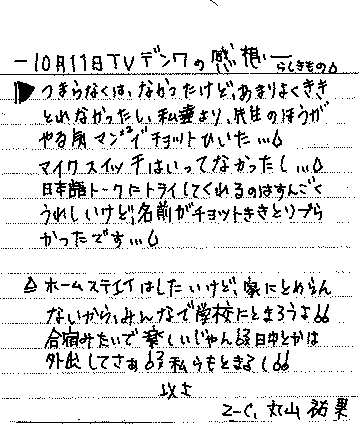 ―10月11日TVデンワの感想―
らしきもの♢
▶つまらなくは、なかったけど、あまりよくきき
とれなかったし、私達より、先生のほうが
やる気マンマンでチョットひいた…♢
マイクスイッチはいってなかったし…♢
日本語トークにトライしてくれるのはすんごく
うれしいけど、名前がチョットききとりづら
かったです…♢
△ホームステイはしたいけど、家にとめらん
ないから、みんなで学校にとまろうよ♢♢
合宿みたいで楽しいじゃん♢♢日中とかは
外出してさぁ♢♢私らもとまるし♢♢
以上
2-C, 丸山